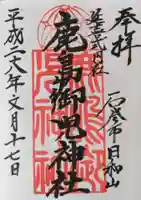 奉拝
石巻市日和山
延喜式内社
鹿島御児神社
平成二八年文月十七日